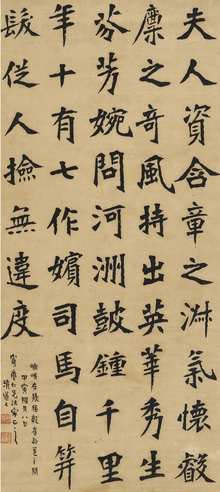 夫人資含章之淋氣懷叡
麇之奇風持出英華秀生
芬芳婉問河洲鼓鍾千里
年十有七作嬪司馬自笄
髮從人撿無違度